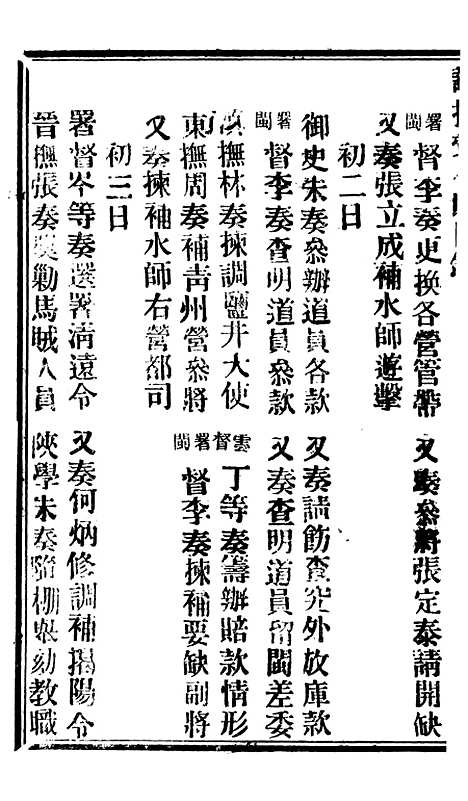 署閩督李奏更換各營管帶　又奏參將張定泰請開缺
又奏張立成補水師遊擊
初二日
御史朱奏參辦道員各款　又奏請飭查究外放庫款
署閩督李奏查明道員參款　又奏查明道員留閩差委
滇撫林奏揀調鹽井大使　雲督丁等奏籌辦賠款情形
東撫周奏補青州營參將　署閩督李奏揀補要缺副將
又奏揀補水師右營都司
初三日
署督岑等奏選署清遠令　又奏何炳修調補揭陽令
晉撫張奏獎勦馬賊人員　陝學朱奏隨棚舉劾教職